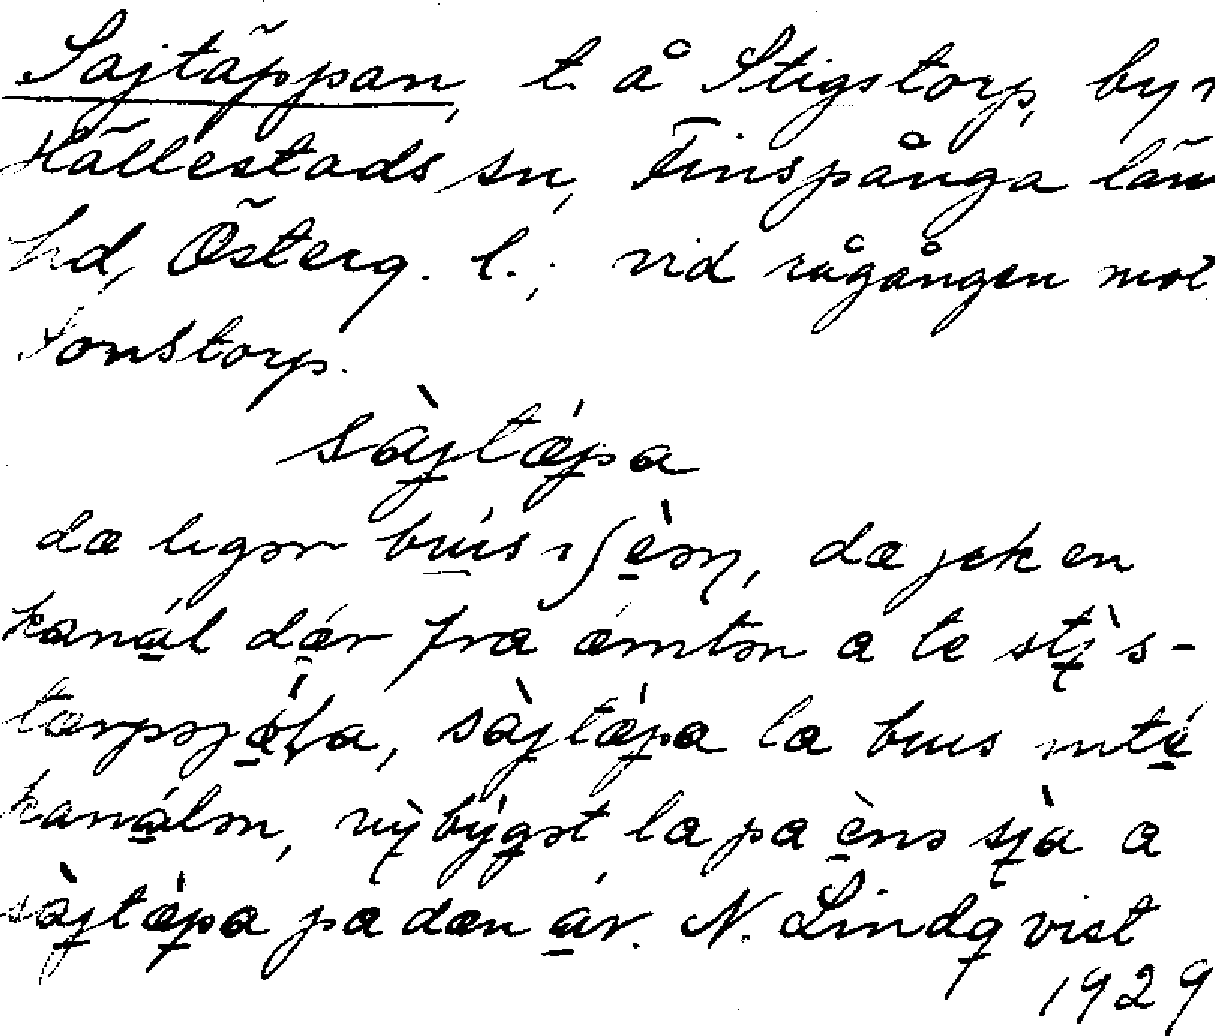 Sajtäppan, t. å Stigstorp, by i
Hällestads sn, Finspånga län
hd, Österg. l.; vid rågången mot
Tonstorp.
sàjtǽpa
dæ ligər búis ı ʃèən, dæ jek en
kanál dǽr fra ǽmtən a te stìs-
tærpsjǿʃa, sàjtǽpa la buis inté
kanálən, nỳbýgət la pa ènə sìa a
sàjtǽpa pa dæn ár. N. Lindqvist
1929